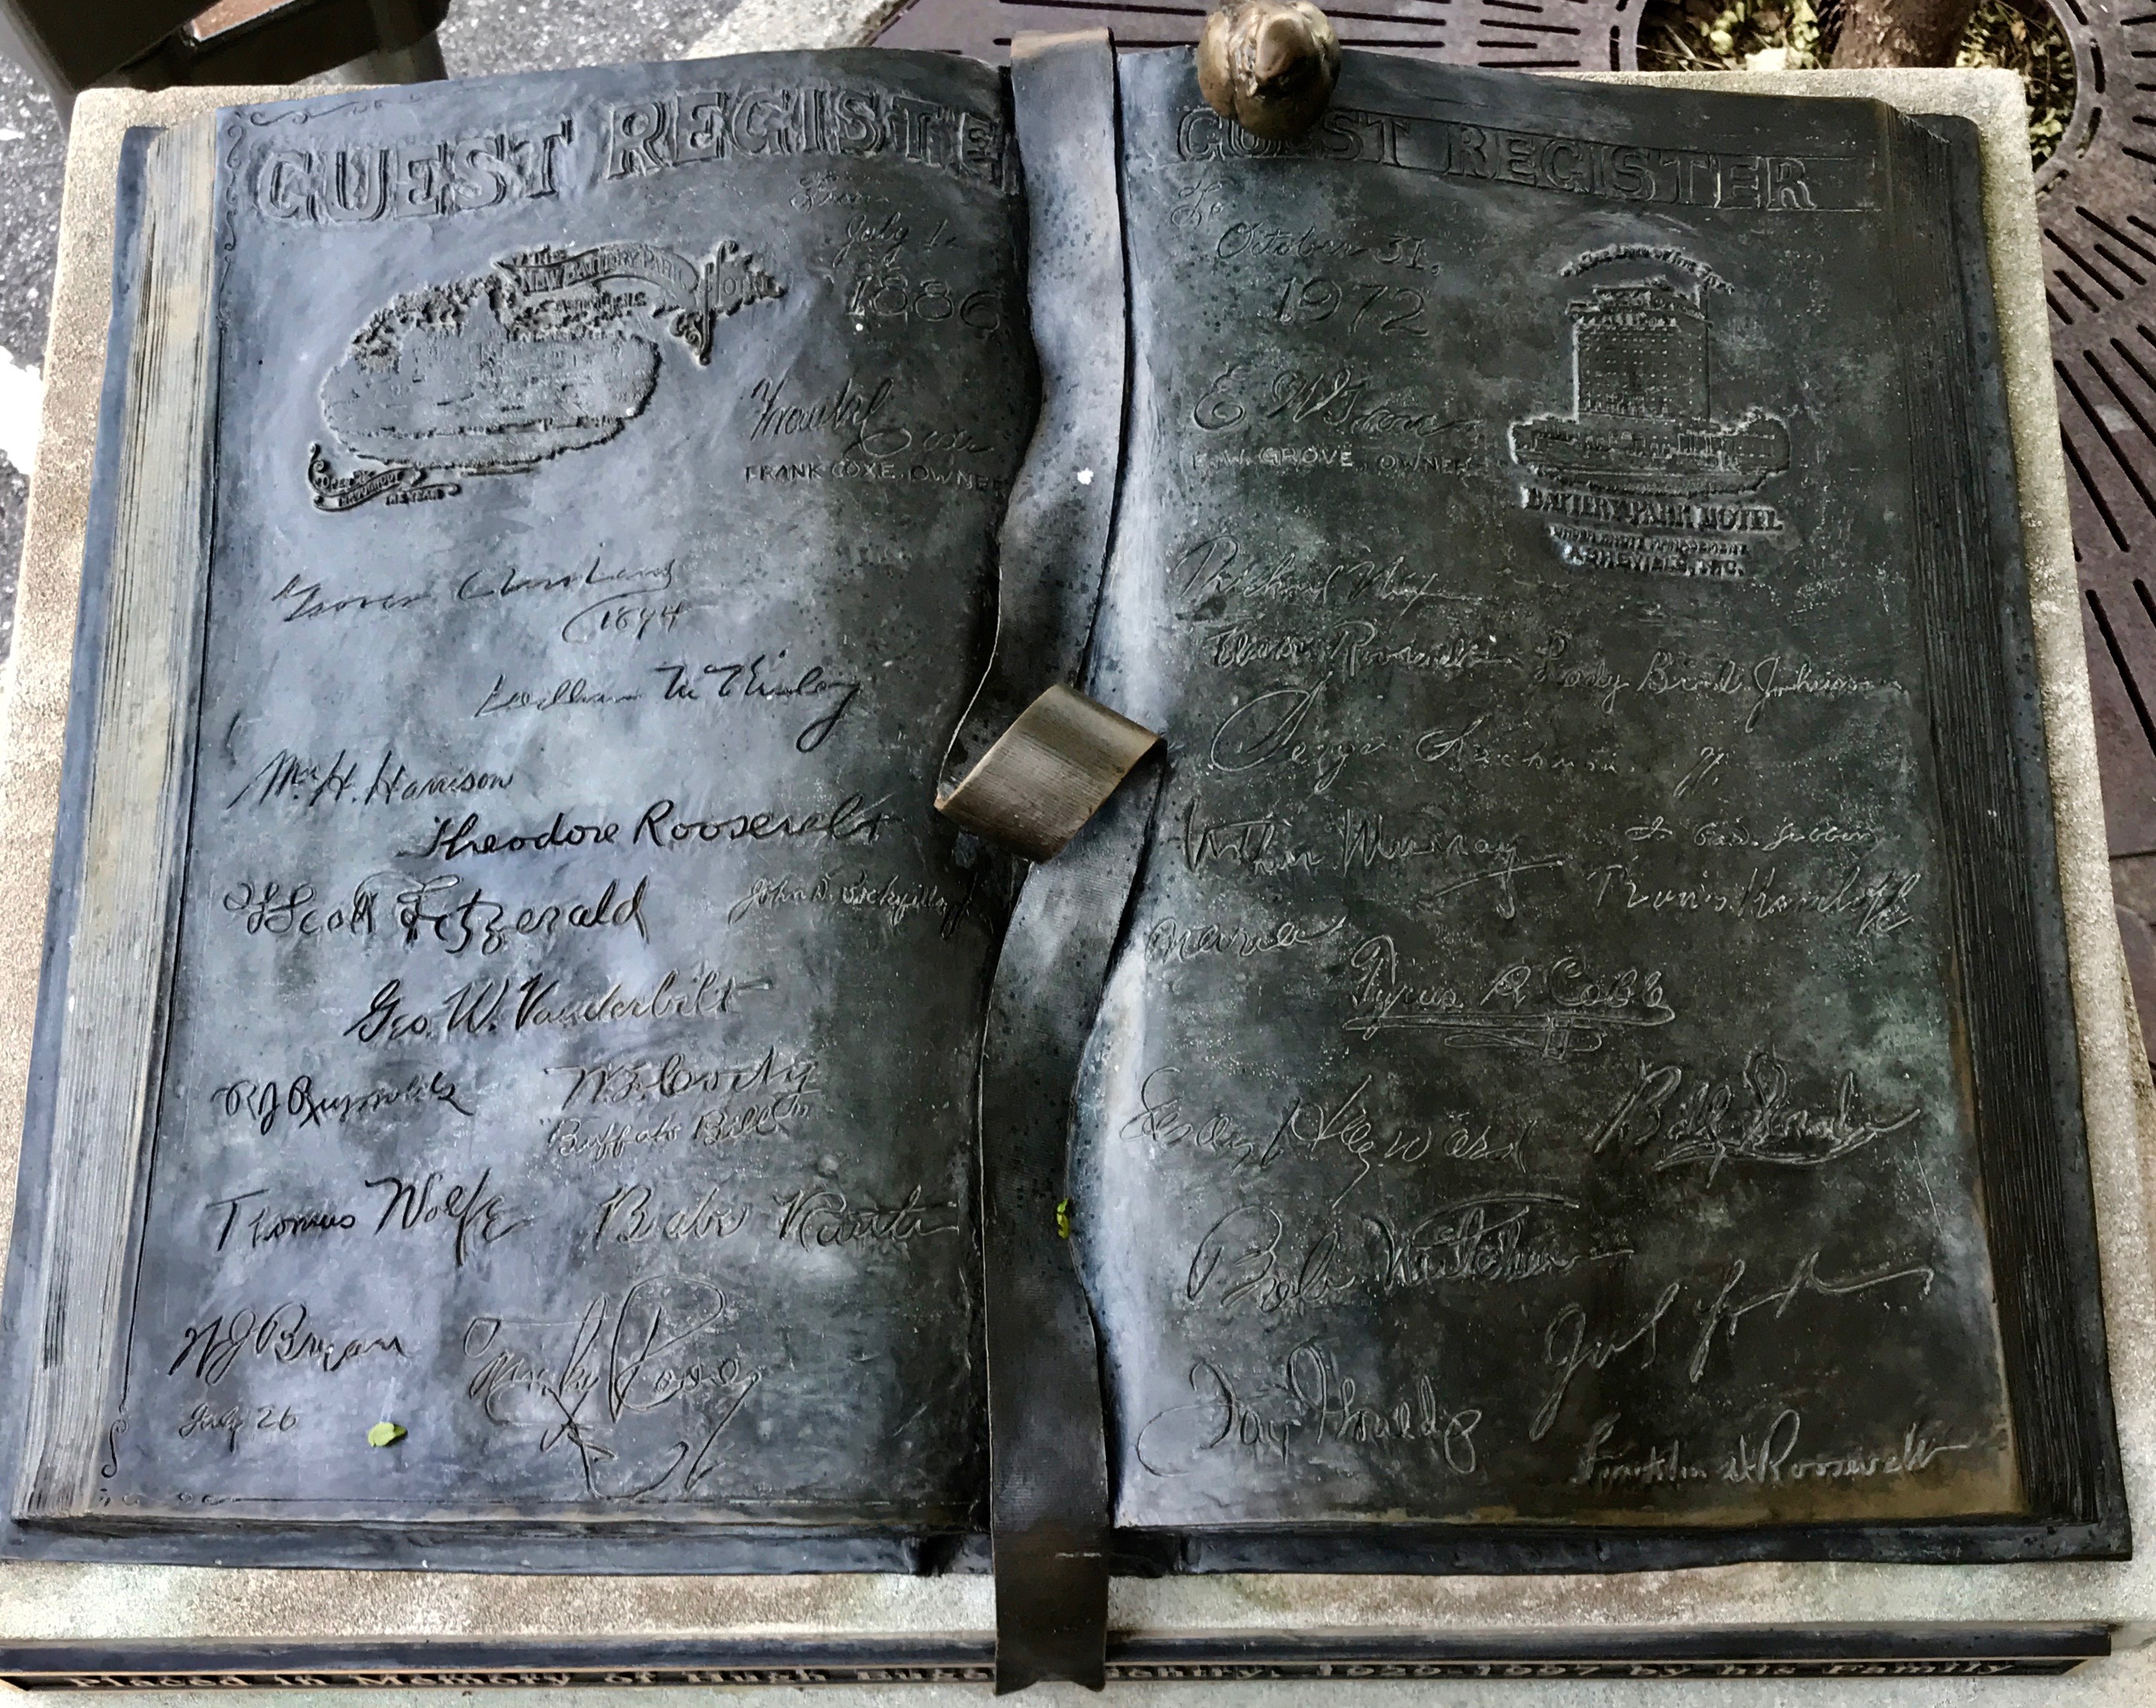 GUEST REGISTE
From
July 1
1886
THE
NEW BATTERY PARK HOTEL
ASHEVILLE, N.C.
OPEN
THROUGHOUT
THE YEAR
Frank Coxe
FRANK COXE, OWNER
Grover Cleveland
1894
William McKinley
Mrs. H. Harrison
Theodore Roosevelt
F Scott Fitzgerald
John D. Rockefeller Jr
Geo. W. Vanderbilt
RJ Reynolds
W.F. Cody
"Buffalo Bill"
Thomas Wolfe
Babe Ruth
WJ Bryan
July 26
GUEST REGISTER
To
October 31,
1972
E W Grove
E.W. GROVE, OWNER
BATTERY PARK HOTEL
ASHEVILLE, N.C.
Richard Nix
Eleanor Roosevelt
Lady Bird Johnson
Arthur Murray
J. Card. Gibbons
Marie
Tyrus R. Cobb
Susan Hayward
Bob Mitchum
Jay Gould
Franklin D Roosevelt
Placed in Memory of Hugh 1926-1997 by his Family